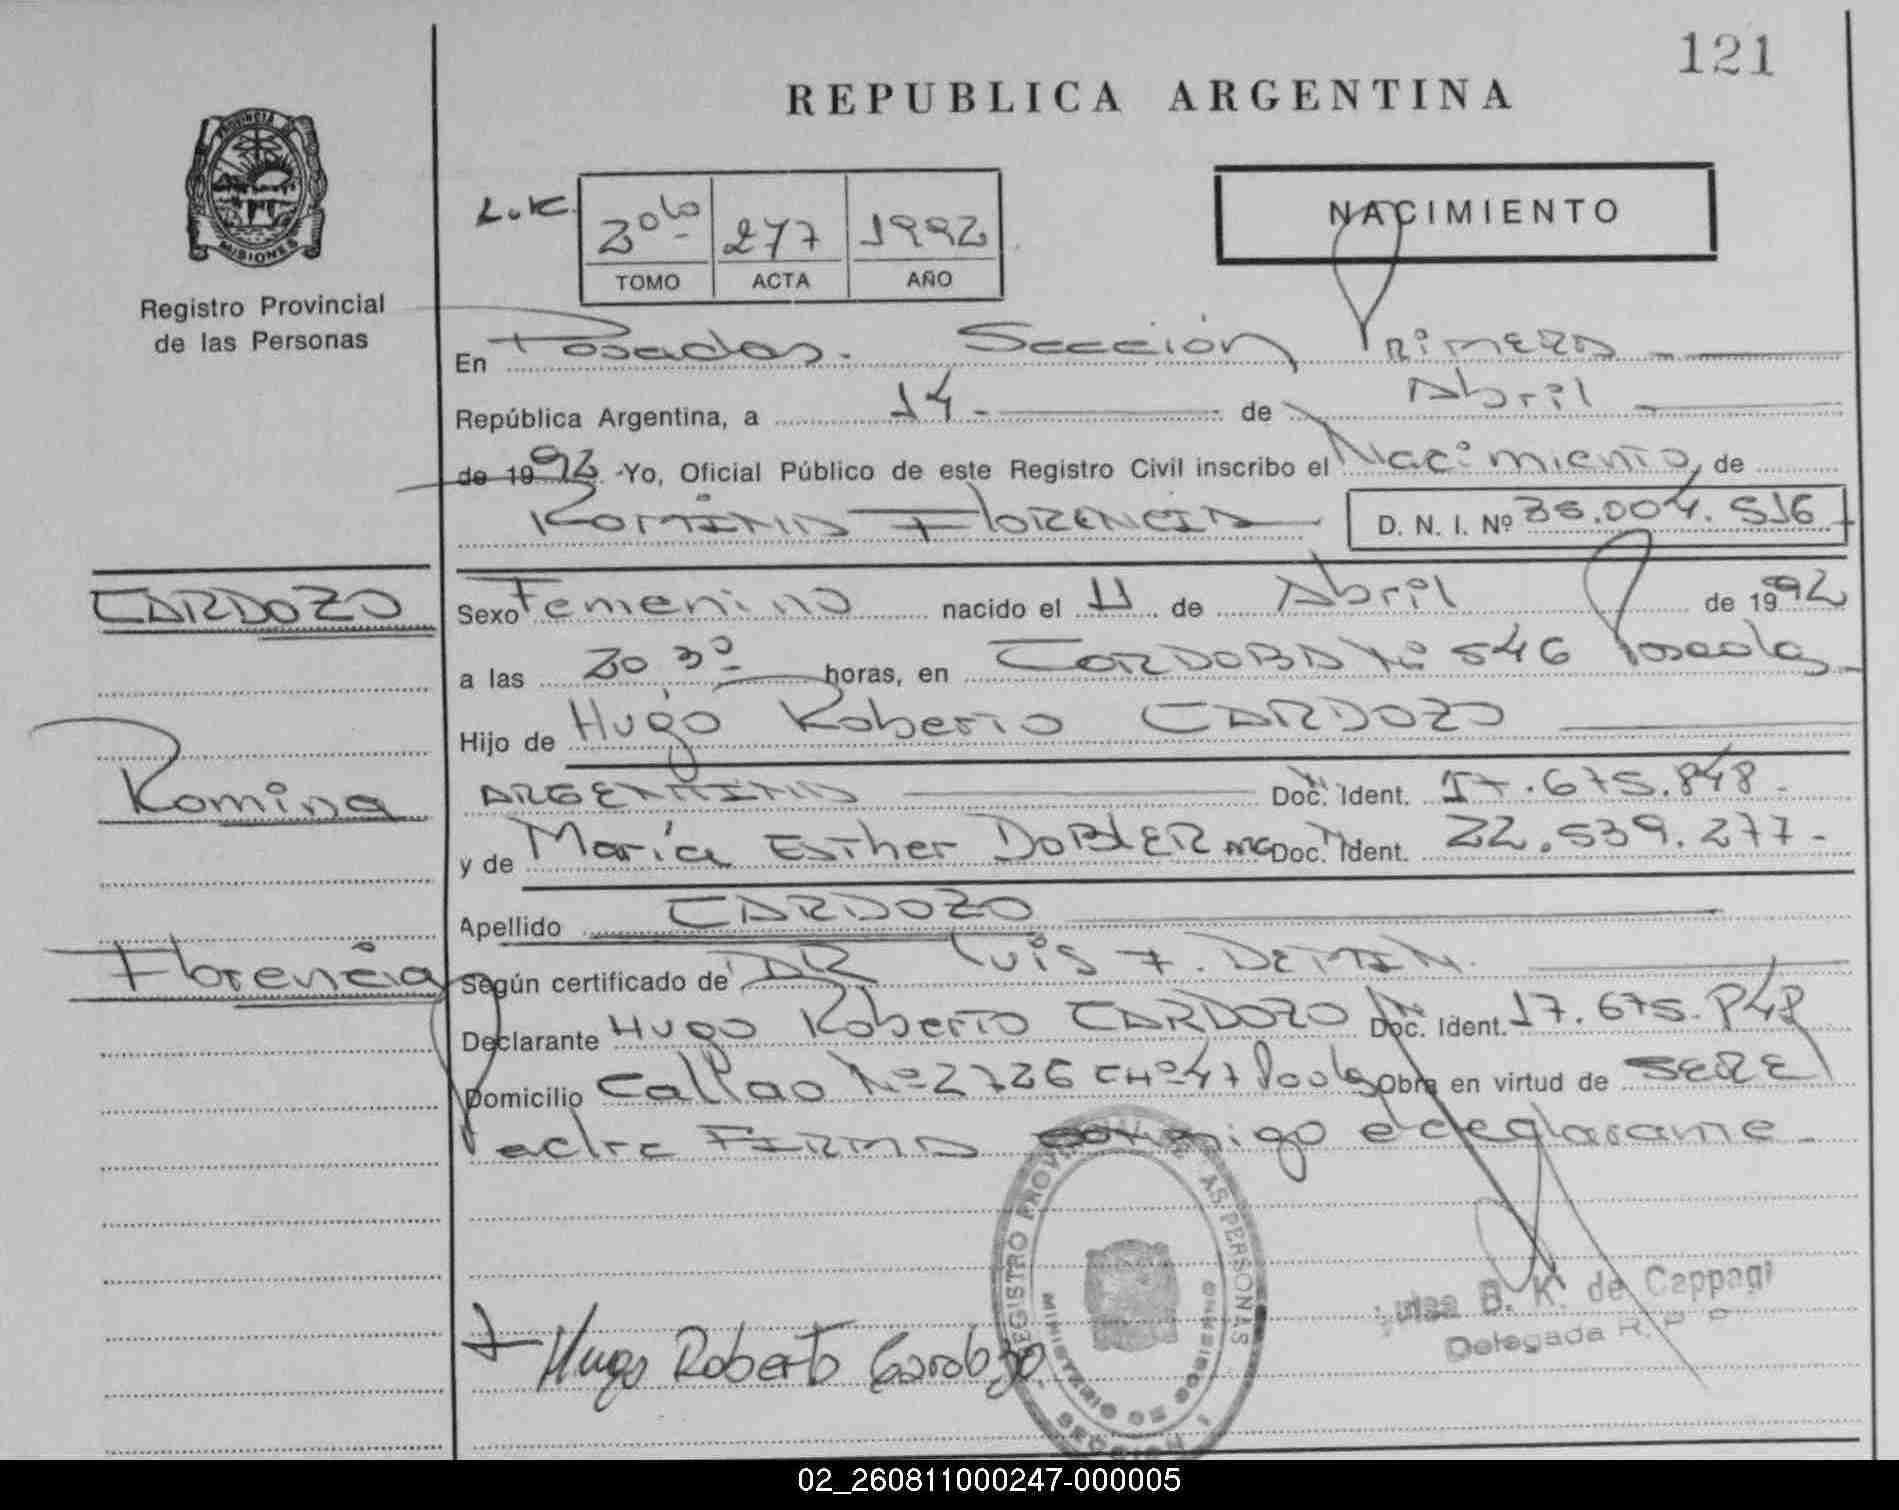 121
REPUBLICA ARGENTINA
PROVINCIA DE
MISIONES
Registro Provincial
de las Personas
L.K. 2º to 277 1992
TOMO ACTA AÑO
NACIMIENTO
En Posadas. Sección Primera
República Argentina, a 14 de Abril
de 1992 -Yo, Oficial Público de este Registro Civil inscribo el Nacimiento, de
ROMINA FLORENCIA D. N. I. Nº 35.004.516
CARDOZO
Romina
Florencia
Sexo Femenino nacido el 11 de Abril de 1992
a las 20 3º horas, en CORDOBA Nº 546 Posadas
Hijo de Hugo Roberto CARDOZO
ARGENTINO Doc. Ident. 17.675.848.
y de María Esther DOBLER Doc. Ident. 22.539.277-
Apellido CARDOZO
Según certificado de DR Luis F.
Declarante Hugo Roberto CARDOZO Doc. Ident. 17.675.848
Domicilio Callao Nº 2726 CHº 47 Obra en virtud de SERE
Padre FIRMA conmigo el declarante.
REGISTRO PROVINCIAL DE LAS PERSONAS
MINISTERIO DE GOBIERNO
SECCION 1
B. K. de Cappagi
Delegada R. P. P.
Hugo Roberto Cardozo
02_260811000247-000005